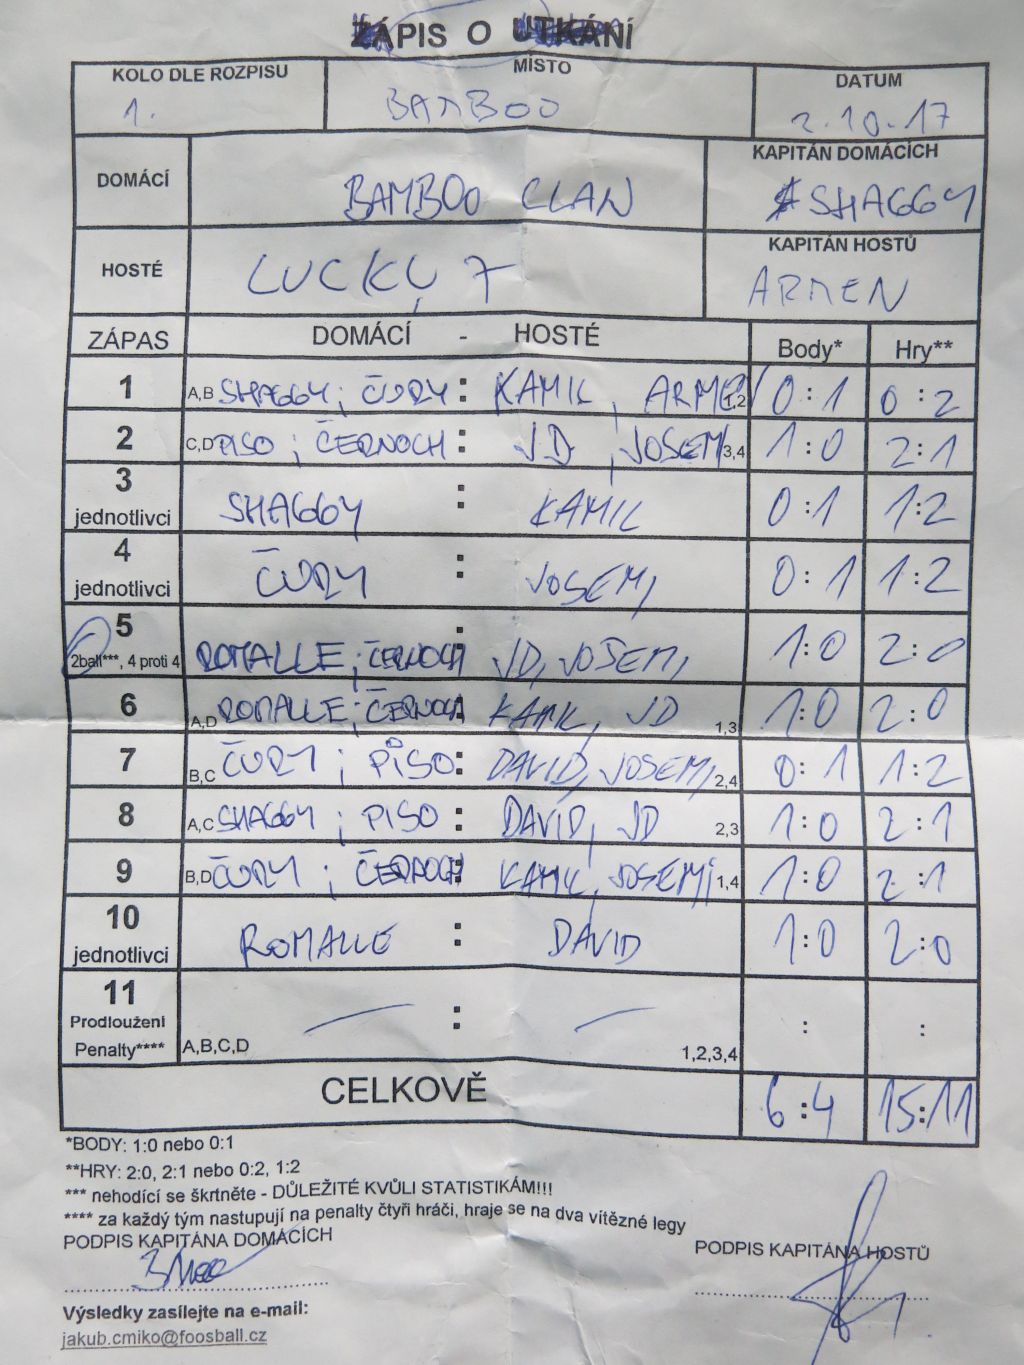 ZÁPIS O UTKÁNÍ
KOLO DLE ROZPISU MÍSTO DATUM
1. BAMBOO 2.10.17
DOMÁCÍ BAMBOO CLAN KAPITÁN DOMÁCÍCH
SHAGGY
HOSTÉ LUCKY 7 KAPITÁN HOSTŮ
ARMEN
ZÁPAS DOMÁCÍ - HOSTÉ Body* Hry**
1 A,B SHAGGY; ČURY : KAMIL, ARMEN 1,2 0:1 0:2
2 C,D PISO; ČERNOCH : JD, JOSEMI 3,4 1:0 2:1
3 jednotlivci SHAGGY : KAMIL 0:1 1:2
4 jednotlivci ČURY : JOSEMI 0:1 1:2
5 2ball***, 4 proti 4 ROMALLE; ČERNOCH : JD, JOSEMI 1:0 2:0
6 A,D ROMALLE; ČERNOCH : KAMIL, JD 1,3 1:0 2:0
7 B,C ČURY; PISO : DAVID, JOSEMI 2,4 0:1 1:2
8 A,C SHAGGY; PISO : DAVID, JD 2,3 1:0 2:1
9 B,D ČURY; ČERNOCH : KAMIL, JOSEMI 1,4 1:0 2:1
10 jednotlivci ROMALLE : DAVID 1:0 2:0
11 Prodloužení Penalty**** A,B,C,D — : — 1,2,3,4 : :
CELKOVĚ 6:4 15:11
*BODY: 1:0 nebo 0:1
**HRY: 2:0, 2:1 nebo 0:2, 1:2
*** nehodící se škrtněte - DŮLEŽITÉ KVŮLI STATISTIKÁM!!!
**** za každý tým nastupují na penalty čtyři hráči, hraje se na dva vítězné legy
PODPIS KAPITÁNA DOMÁCÍCH PODPIS KAPITÁNA HOSTŮ
Výsledky zasílejte na e-mail:
jakub.cmiko@foosball.cz